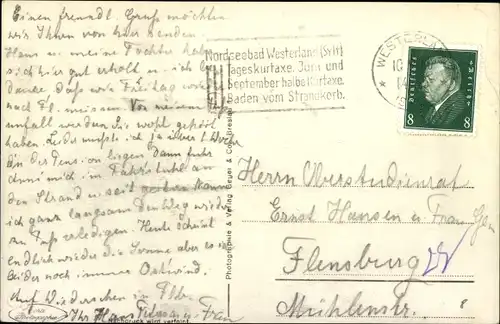 Einen freundl. Gruß möchten
wir Ihnen von hier senden
Hans u. meine Tochter haben
sich hier gut erholt u. ich
daß wir Freitag wieder
nach Fl. müssen. Von meinem
unfall werden Sie wohl gehört
haben. Leider mußte ich ja über 1 Woche
in der Pension liegen. Dann fuhr
man mich im Fahrstuhl an
den Strand u. seit gestern kann
ich ganz langsam den Weg wieder
zu Fuß erledigen. Heute scheint
endlich wieder die Sonne aber es
leider noch immer Ostwind.
Auf Wiedersehen in Flbg.
Ihr Hans u. Frau
Nordseebad Westerland (Sylt)
Tageskurtaxe. Juni und
September halbe Kurtaxe.
Baden vom Strandkorb.
WESTERLAND
Deutsches Reich
8 8
Photographie & Verlag Geyer & Co., Breslau
Herrn Oberstudienrat
Ernst Hansen u. Frau Gem
Flensburg
Mühlenstr.
Nachdruck wird verfolgt.